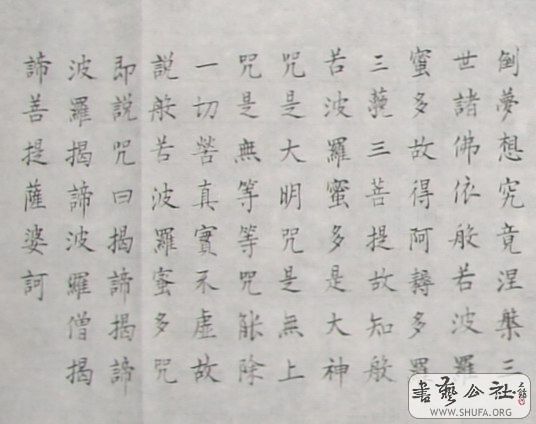 倒夢想究竟涅槃三
世諸佛依般若波羅
蜜多故得阿耨多羅
三藐三菩提故知般
若波羅蜜多是大神
咒是大明咒是無上
咒是無等等咒能除
一切苦真實不虛故
說般若波羅蜜多咒
即說咒曰揭諦揭諦
波羅揭諦波羅僧揭
諦菩提薩婆訶
書藝公社
WWW.SHUFA.ORG